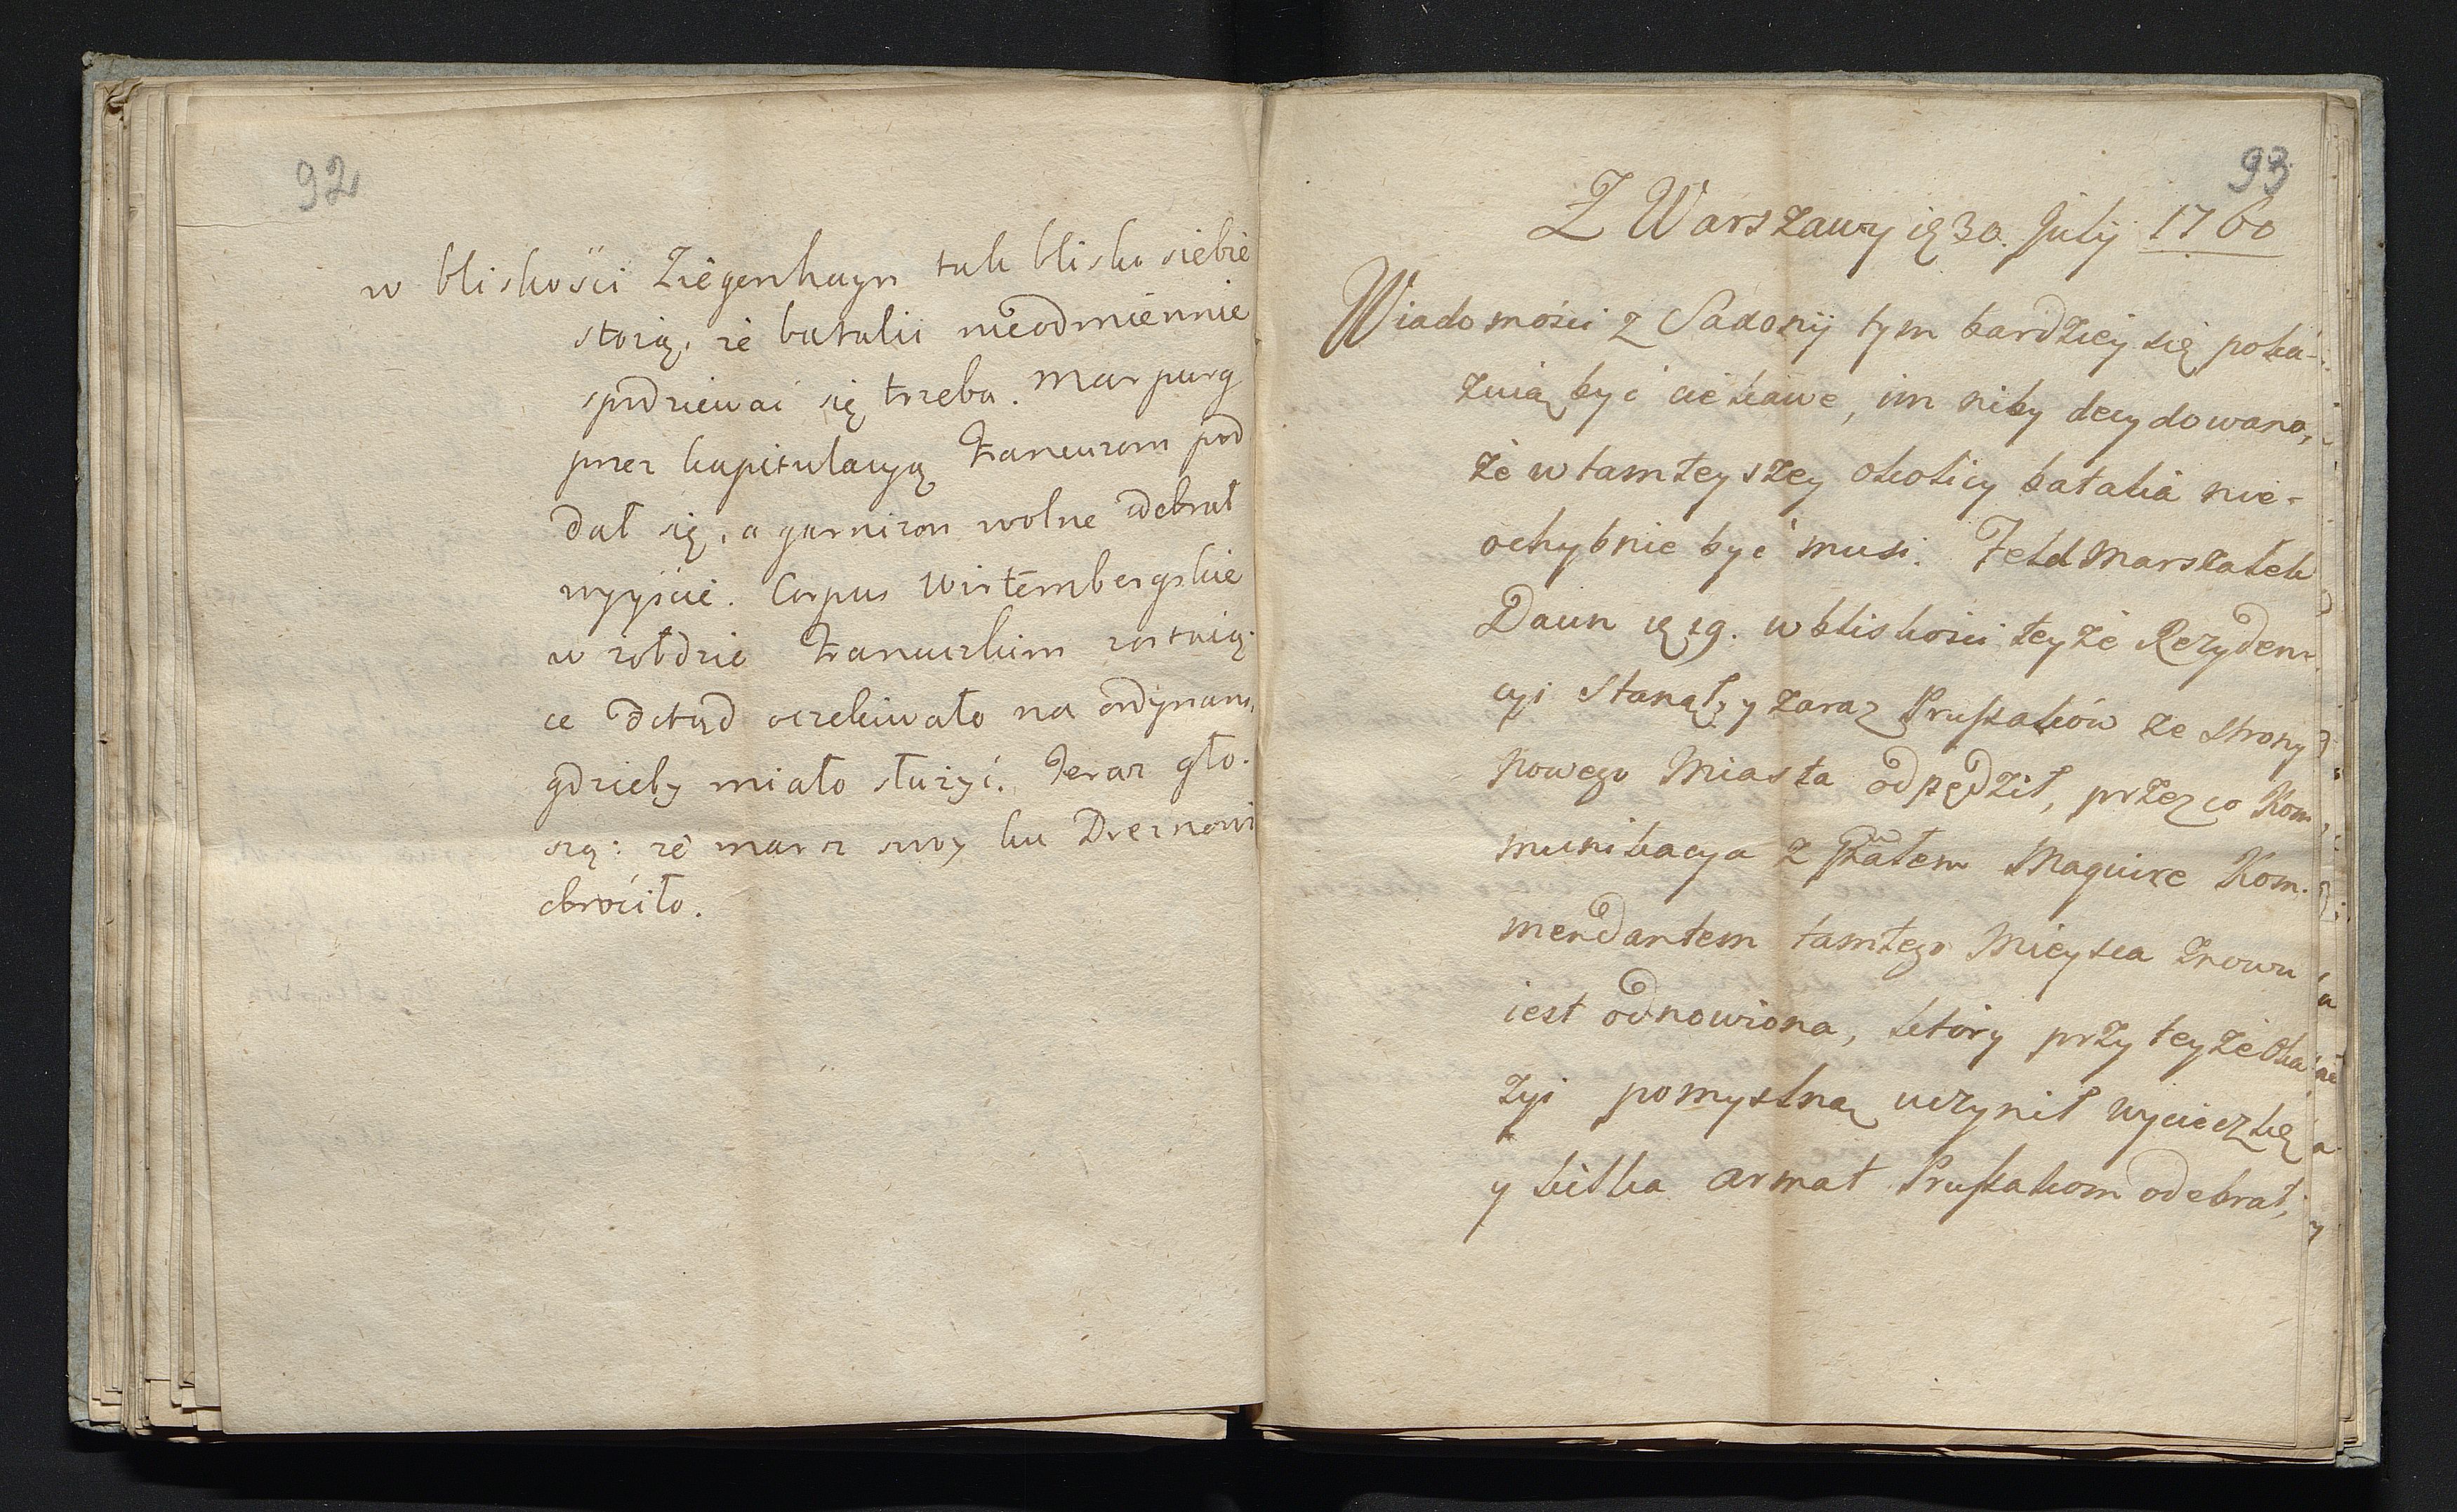 92
w bliskości Ziegenhayn tak blisko siebie
stoią, że batalii nieodmiennie
spodziewać się trzeba. Marpurg
przez kapitulacyą Francuzom pod
dał się, a garnizon wolne odebrał
wyyście. Corpus Wirtembergskie
w żołdzie Francuzkim zostaią-
ce dotąd oczekiwało na ordynans,
gdzieby miało służyć. Teraz gło-
szą: że marsz swoy ku Dreznowi
obróciło.
93
Z Warszawy 30. Julij 1760
Wiadomości z Saxonij tym bardziey się poka-
zuią być ciekawe, im niby decydowano,
że w tamteyszey okolicy batalia nie-
ochybnie być musi. Feldmarszałek
Daun 19. w bliskości teyże Rezyden-
cyi stanął, y zaraz Prusaków ze strony
nowego Miasta odpędził, przez co Kom
munikacya z Maguire Kom-
mendantem tamtego Mieysca znowu
iest odnowiona, który przy teyże Oka
zyi pomyslną uczynił wycieczkę
y kilka armat Prusakom odebrał,